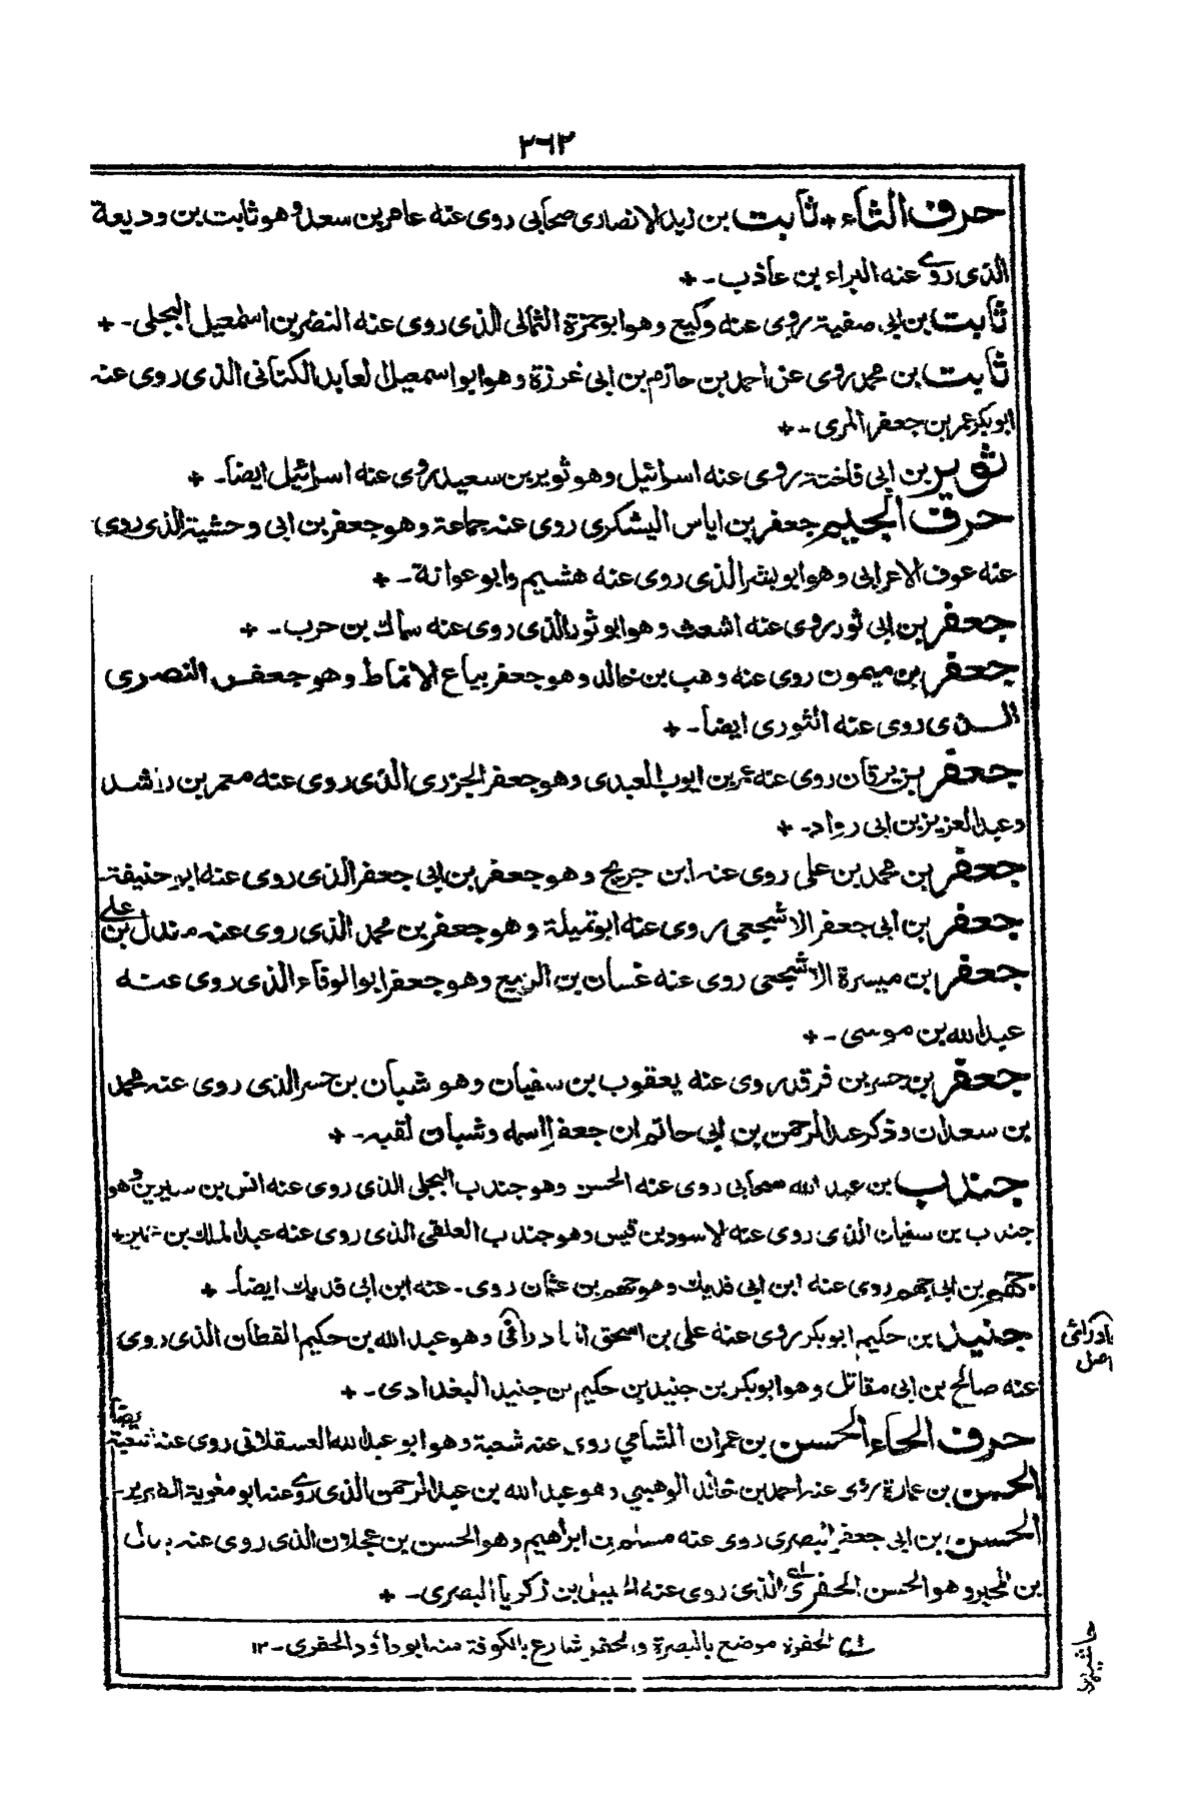 ٢٦٢
حرف الثاء + ثابت بن زيد الانصارى صحابى روى عنه عامر بن سعد وهو ثابت بن وديعة
الذى روى عنه البراء بن عاذب - +
ثابت بن ابى صفية روى عنه وكيع وهو ابو حمزة الثمالى الذى روى عنه النضر بن اسمعيل البجلى - +
ثابت بن محمد روى عن احمد بن حازم بن ابى غرزة وهو ابو اسمعيل العابد الكنانى الذى روى عنه
ابو بكر عمر بن جعفر المرى - +
ثوير بن ابى فاختة روى عنه اسرائيل وهو ثوير بن سعيد روى عنه اسرائيل ايضاً - +
حرف الجيم جعفر بن اياس اليشكرى روى عنه جماعة وهو جعفر بن ابى وحشية الذى روى
عنه عوف الاعرابى وهو ابو بشر الذى روى عنه هشيم وابو عوانة - +
جعفر بن ابى ثور روى عنه اشعث وهو ابو ثور الذى روى عنه سماك بن حرب - +
جعفر بن ميمون روى عنه وهب بن خالد وهو جعفر بياع الانماط وهو جعفر النصرى
الذى روى عنه الثورى ايضاً - +
جعفر بن برقان روى عنه عمر بن ايوب العبدى وهو جعفر الجزرى الذى روى عنه معمر بن راشد
وعبد العزيز بن ابى رواد - +
جعفر بن محمد بن على روى عنه ابن جريج وهو جعفر بن ابى جعفر الذى روى عنه ابو حنيفة -
جعفر بن ابى جعفر الاشجعى روى عنه ابو تميلة وهو جعفر بن محمد الذى روى عنه مندل بن على
جعفر بن ميسرة الاشجعى روى عنه غسان بن الربيع وهو جعفر ابو الوفاء الذى روى عنه
عبد الله بن موسى - +
جعفر بن جسر بن فرقد روى عنه يعقوب بن سفيان وهو شبان بن جسر الذى روى عنه محمد
بن سعدان وذكر عبد الرحمن بن ابى حاتم ان جعفرا اسمه وشبان لقبه - +
جندب بن عبد الله صحابى روى عنه الحسن وهو جندب البجلى الذى روى عنه انس بن سيرين وهو
جندب بن سفيان الذى روى عنه لاسود بن قيس وهو جندب العلقى الذى روى عنه عبد الملك بن عمير +
جهم بن ابى جهم روى عنه ابن ابى فديك وهو جهم بن عثمان روى - عنه ابن ابى فديك ايضاً - +
جنيد بن حكيم ابو بكر روى عنه على بن اسحق الادرائى وهو عبد الله بن حكيم القطان الذى روى
عنه صالح بن ابى مقاتل وهو ابو بكر بن جنيد بن حكيم بن جنيد البغدادى - +
حرف الحاء الحسن بن عمران الشامي روى عنه شعبة وهو ابو عبد الله العسقلانى روى عنه شعبة ايضاً
الحسن بن عمارة روى عنه احمد بن خالد الوهبى وهو عبد الله بن عبد الرحمن الذى روى عنه ابو معوية الضرير -
الحسن بن ابى جعفر البصرى روى عنه مسلم بن ابراهيم وهو الحسن بن عجلان الذى روى عنه
بن المحبر وهو الحسن الحفرى الذى روى عنه بن زكريا البصرى - +
الحفرة موضع بالبصرة والحفر شارع بالكوفة منه ابو داؤد الحفرى - ١٢
اصل
حاشيه